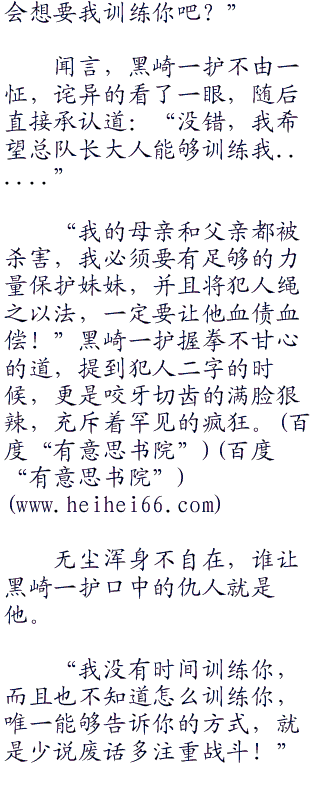 会想要我训练你吧？”
闻言，黑崎一护不由一
怔，诧异的看了一眼，随后
直接承认道：“没错，我希
望总队长大人能够训练我..
....”
“我的母亲和父亲都被
杀害，我必须要有足够的力
量保护妹妹，并且将犯人绳
之以法，一定要让他血债血
偿！”黑崎一护握拳不甘心
的道，提到犯人二字的时
候，更是咬牙切齿的满脸狠
辣，充斥着罕见的疯狂。(百
度“有意思书院”)(百度
“有意思书院”)
(www.heihei66.com)
无尘浑身不自在，谁让
黑崎一护口中的仇人就是
他。
“我没有时间训练你，
而且也不知道怎么训练你，
唯一能够告诉你的方式，就
是少说废话多注重战斗！”